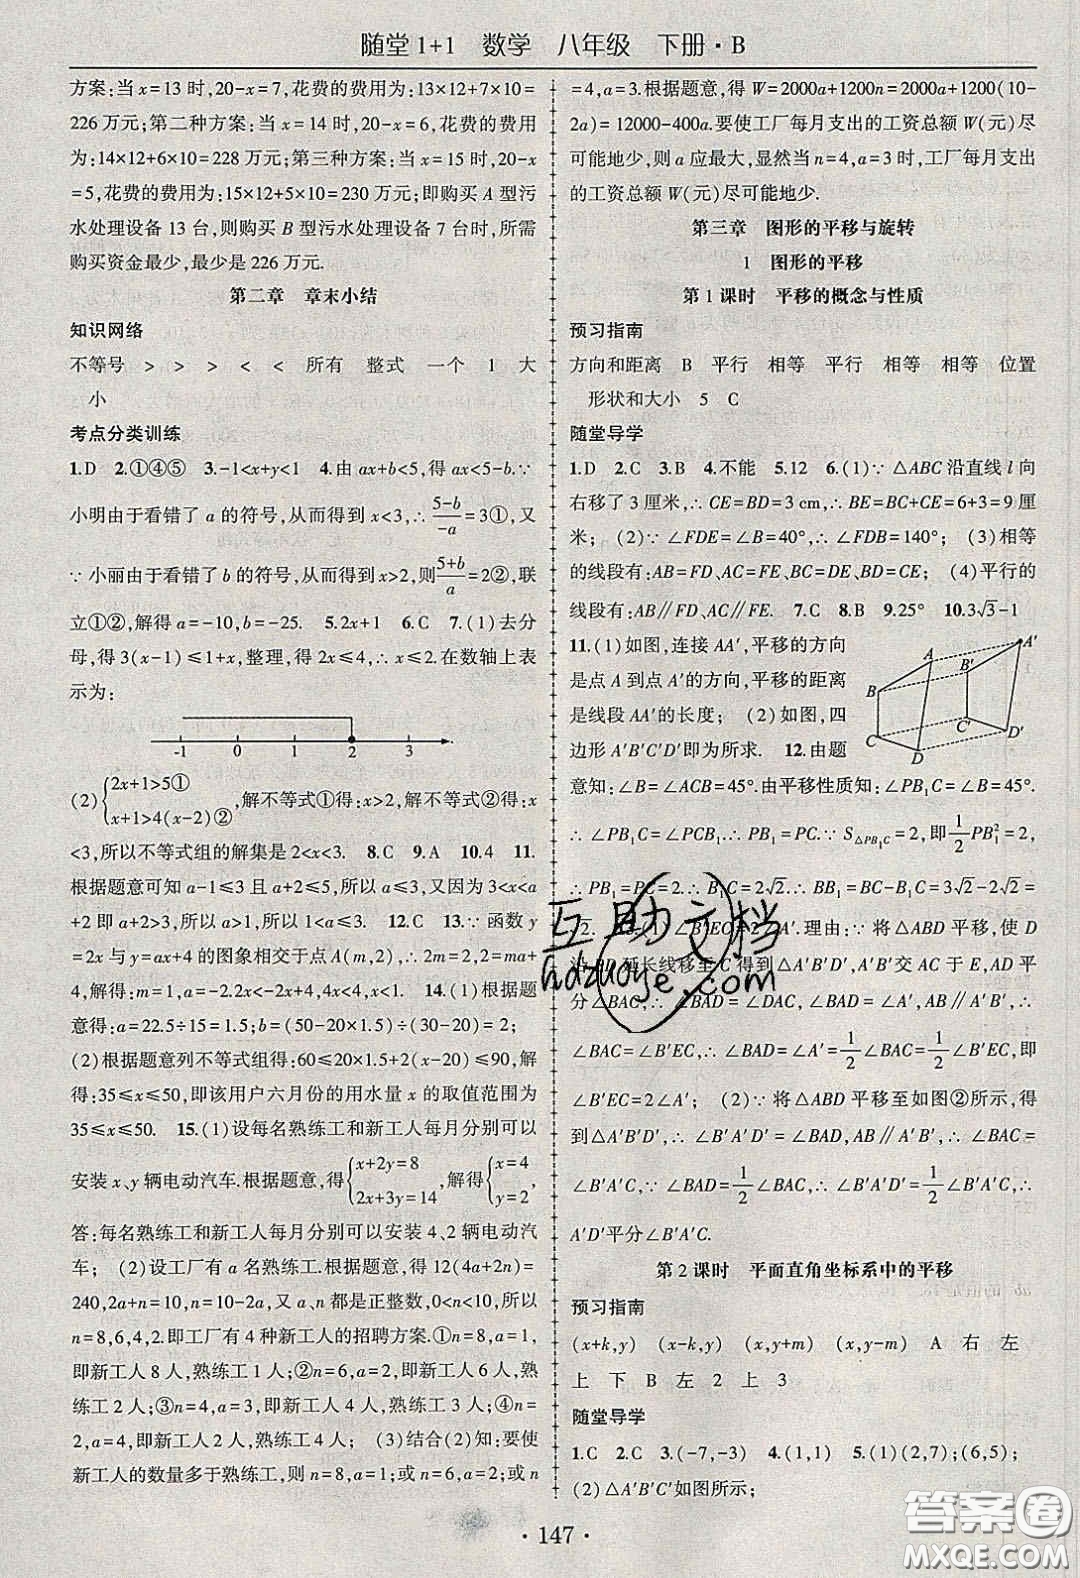 随堂1+1 数学 八年级 下册·B
方案:当x=13时,20-x=7,花费的费用为:13×12+7×10=
226万元;第二种方案:当x=14时,20-x=6,花费的费用
为:14×12+6×10=228万元;第三种方案:当x=15时,20-x
=5,花费的费用为:15×12+5×10=230万元;即购买A型污
水处理设备13台,则购买B型污水处理设备7台时,所需
购买资金最少,最少是226万元.
第二章 章末小结
知识网络
不等号 > > > < < 所有 整式 一个 1 大
小
考点分类训练
1.D 2.①④⑤ 3.-1<x+y<1 4.由ax+b<5,得ax<5-b.∵
小明由于看错了a的符号,从而得到x<3,∴(5-b)/(-a)=3①,又
∵小丽由于看错了b的符号,从而得到x>2,则(5+b)/a=2②,联
立①②,解得a=-10,b=-25. 5.2x+1 6.C 7.(1)去分
母,得3(x-1)≤1+x,整理,得2x≤4,∴x≤2.在数轴上表
示为:
-1 0 1 2 3
(2){2x+1>5① x+1>4(x-2)②,解不等式①得:x>2,解不等式②得:x
<3,所以不等式组的解集是2<x<3. 8.C 9.A 10.4 11.
根据题意可知a-1≤3且a+2≤5,所以a≤3,又因为3<x<a
+2即a+2>3,所以a>1,所以1<a≤3. 12.C 13.∵函数y
=2x与y=ax+4的图象相交于点A(m,2),∴2m=2,2=ma+
4,解得:m=1,a=-2.2x<-2x+4,4x<4,x<1. 14.(1)根据题
意得:a=22.5÷15=1.5;b=(50-20×1.5)÷(30-20)=2;
(2)根据题意列不等式组得:60≤20×1.5+2(x-20)≤90,解
得:35≤x≤50,即该用户六月份的用水量x的取值范围为
35≤x≤50. 15.(1)设每名熟练工和新工人每月分别可以
安装x、y辆电动汽车.根据题意,得{x+2y=8 2x+3y=14,解得{x=4, y=2,
答:每名熟练工和新工人每月分别可以安装4、2辆电动汽
车; (2)设工厂有a名熟练工.根据题意,得12(4a+2n)=
240,2a+n=10,n=10-2a,又a、n都是正整数,0<n<10,所以
n=8,6,4,2.即工厂有4种新工人的招聘方案.①n=8,a=1,
即新工人8人,熟练工1人;②n=6,a=2,即新工人6人,熟
练工2人;③n=4,a=3,即新工人4人,熟练工3人;④n=
2,a=4,即新工人2人,熟练工4人; (3)结合(2)知:要使
新工人的数量多于熟练工,则n=8,a=1;或n=6,a=2;或n
=4,a=3.根据题意,得W=2000a+1200n=2000a+1200(10-
2a)=12000-400a.要使工厂每月支出的工资总额W(元)尽
可能地少,则a应最大,显然当n=4,a=3时,工厂每月支出
的工资总额W(元)尽可能地少.
第三章 图形的平移与旋转
1 图形的平移
第1课时 平移的概念与性质
预习指南
方向和距离 B 平行 相等 平行 相等 相等 位置
形状和大小 5 C
随堂导学
1.D 2.C 3.B 4.不能 5.12 6.(1)∵△ABC沿直线l向
右移了3厘米,∴CE=BD=3 cm,∴BE=BC+CE=6+3=9厘
米; (2)∵∠FDE=∠B=40°,∴∠FDB=140°; (3)相等
的线段有:AB=FD、AC=FE、BC=DE、BD=CE; (4)平行的
线段有:AB∥FD、AC∥FE. 7.C 8.B 9.25° 10.3√3-1
11.(1)如图,连接AA′,平移的方向
是点A到点A′的方向,平移的距离
是线段AA′的长度; (2)如图,四
边形A′B′C′D′即为所求. 12.由题
A A′ B B′ C C′ D D′
意知:∠B=∠ACB=45°.由平移性质知:∠PB₁C=∠B=45°.
∴∠PB₁C=∠PCB₁.∴PB₁=PC.∵S△PB₁C=2,即1/2PB₁²=2,
∴PB₁=PC=2.∴B₁C=2√2.∴BB₁=BC-B₁C=3√2-2√2=
√2. 13.(1)∠B′EC=2∠A′.理由:∵将△ABD平移,使D
沿BD延长线移至C得到△A′B′D′,A′B′交AC于E,AD平
分∠BAC,∴∠BAD=∠DAC,∠BAD=∠A′,AB∥A′B′,∴
∠BAC=∠B′EC,∴∠BAD=∠A′=1/2∠BAC=1/2∠B′EC,即
∠B′EC=2∠A′; (2)∵将△ABD平移至如图②所示,得
到△A′B′D′,∴∠B′A′D′=∠BAD,AB∥A′B′,∴∠BAC=
∠B′A′C,∵∠BAD=1/2∠BAC,∴∠B′A′D′=1/2∠B′A′C,∴
A′D′平分∠B′A′C.
第2课时 平面直角坐标系中的平移
预习指南
(x+k,y) (x-k,y) (x,y+m) (x,y-m) A 右 左
上 下 B 左 2 上 3
随堂导学
1.C 2.C 3.(-7,-3) 4.(1,1) 5.(1)(2,7);(6,5);
(2)△A′B′C′如图所示;
互助文档
hdzuoye.com
·147·
答案圈
MXQE.COM